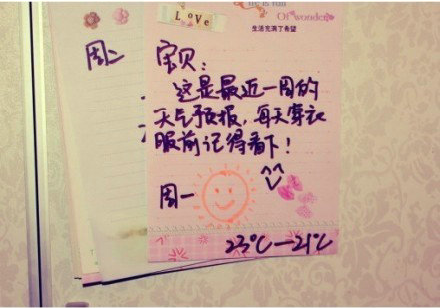 LoVe
is full
Of wonder
生活充满了希望
周二
宝贝：
这是最近一周的
天气预报，每天穿衣
服前记得看下！
周一
23℃—21℃